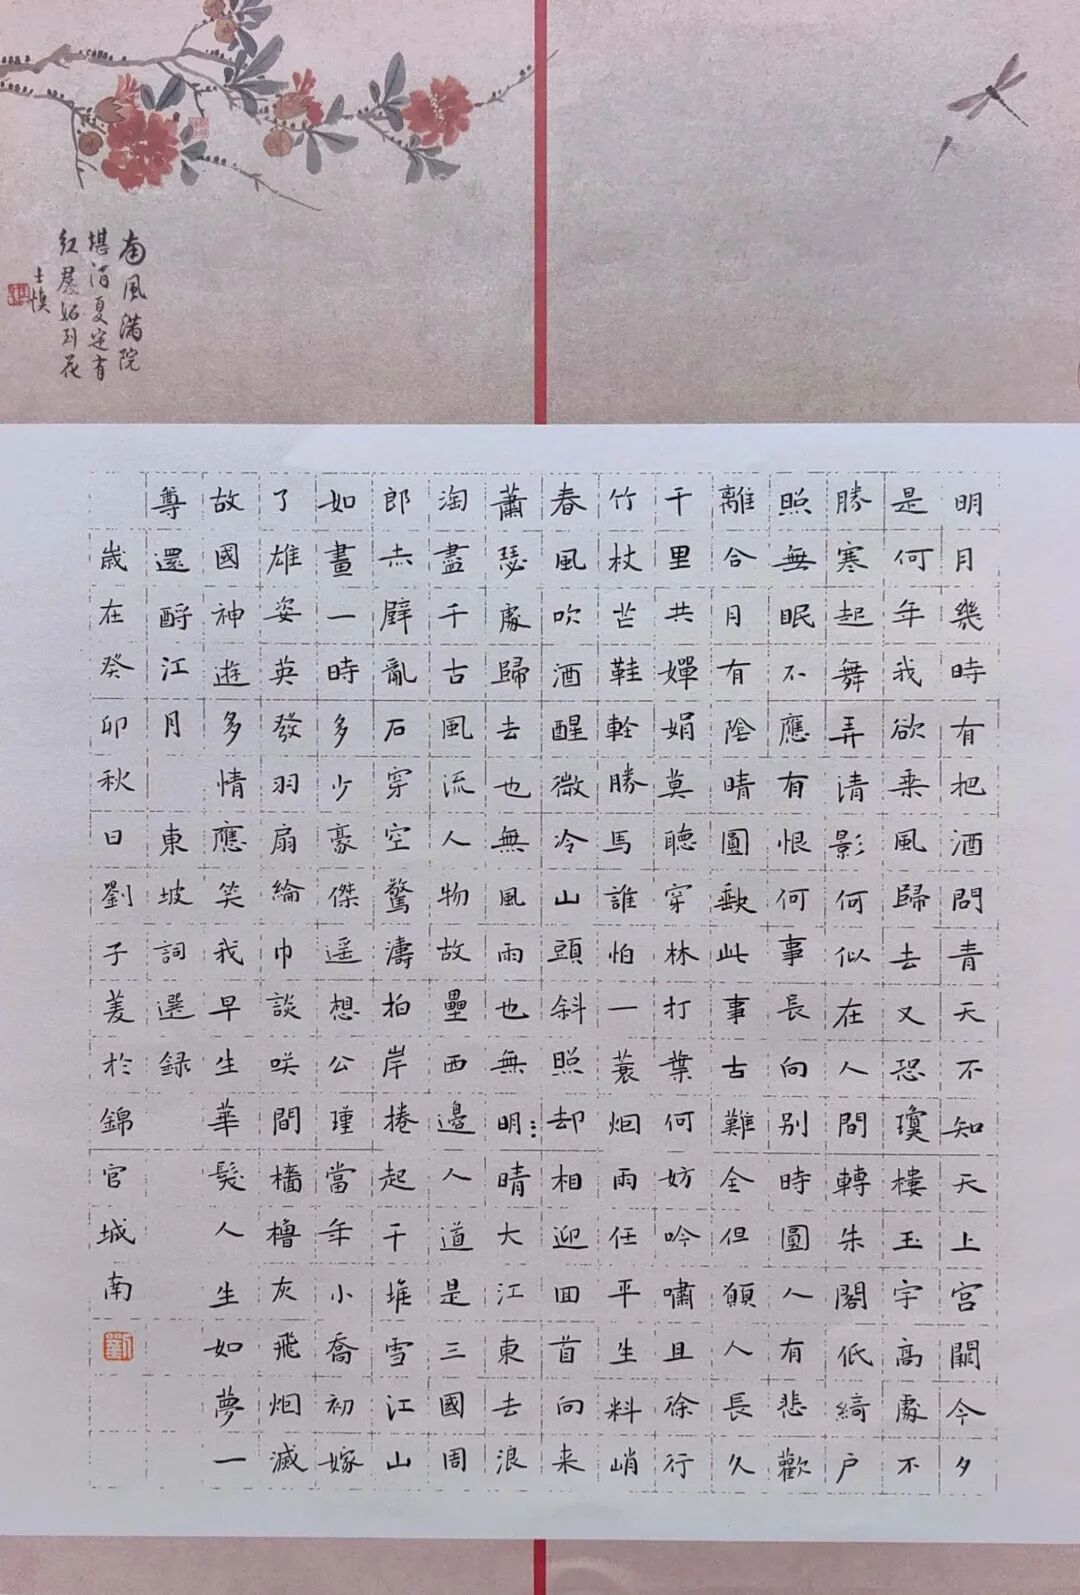 南風滿院
堪消夏定有
紅裠妬到花
士慎
明月幾時有把酒問青天不知天上宮闕今夕
是何年我欲乘風歸去又恐瓊樓玉宇高處不
勝寒起舞弄清影何似在人間轉朱閣低綺戶
照無眠不應有恨何事長向別時圓人有悲歡
離合月有陰晴圓缺此事古難全但願人長久
千里共嬋娟莫聽穿林打葉何妨吟嘯且徐行
竹杖芒鞋輕勝馬誰怕一蓑烟雨任平生料峭
春風吹酒醒微冷山頭斜照却相迎回首向来
蕭瑟處歸去也無風雨也無明晴大江東去浪
淘盡千古風流人物故壘西邊人道是三國周
郎赤壁亂石穿空驚濤拍岸捲起千堆雪江山
如畫一時多少豪傑遥想公瑾當年小喬初嫁
了雄姿英發羽扇綸巾談咲間檣櫓灰飛烟滅
故國神遊多情應笑我早生華髮人生如夢一
尊還酹江月 東坡詞選録
歲在癸卯秋日劉子羑於錦官城南
劉